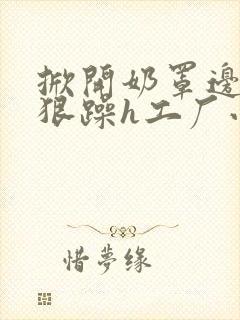 掀開奶罩邊
狠躁h工厂
惜夢缘